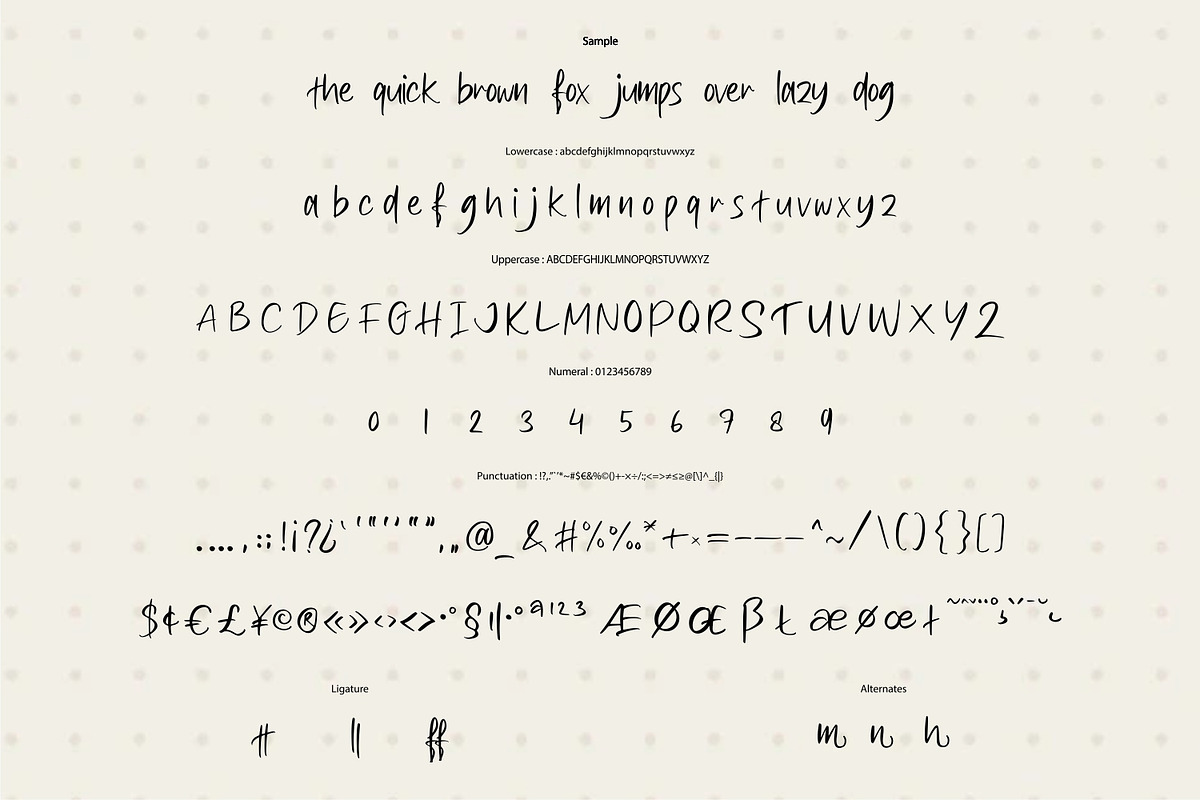 Sample
the quick brown fox jumps over lazy dog
Lowercase : abcdefghijklmnopqrstuvwxyz
a b c d e f g h i j k l m n o p q r s t u v w x y z
Uppercase : ABCDEFGHIJKLMNOPQRSTUVWXYZ
A B C D E F G H I J K L M N O P Q R S T U V W X Y Z
Numeral : 0123456789
0 1 2 3 4 5 6 7 8 9
Punctuation : !?,.”“‘’*~#$€&%©()+-×÷/:;<=>≠≤≥@[\]^_{|}
. … , : ; ! ¡ ? ¿ ‘ ' " “ ‘ ’ “ ” ‚ „ @ _ & # % ‰ * + × = - – — ^ ~ / \ ( ) { } [ ]
$ ¢ € £ ¥ © ® « » ‹ › < > · ° § | ‖ • º ª 1 2 3 Æ Ø Œ ß ł æ ø œ ł
Ligature
Alternates
tt ll ff
m n h